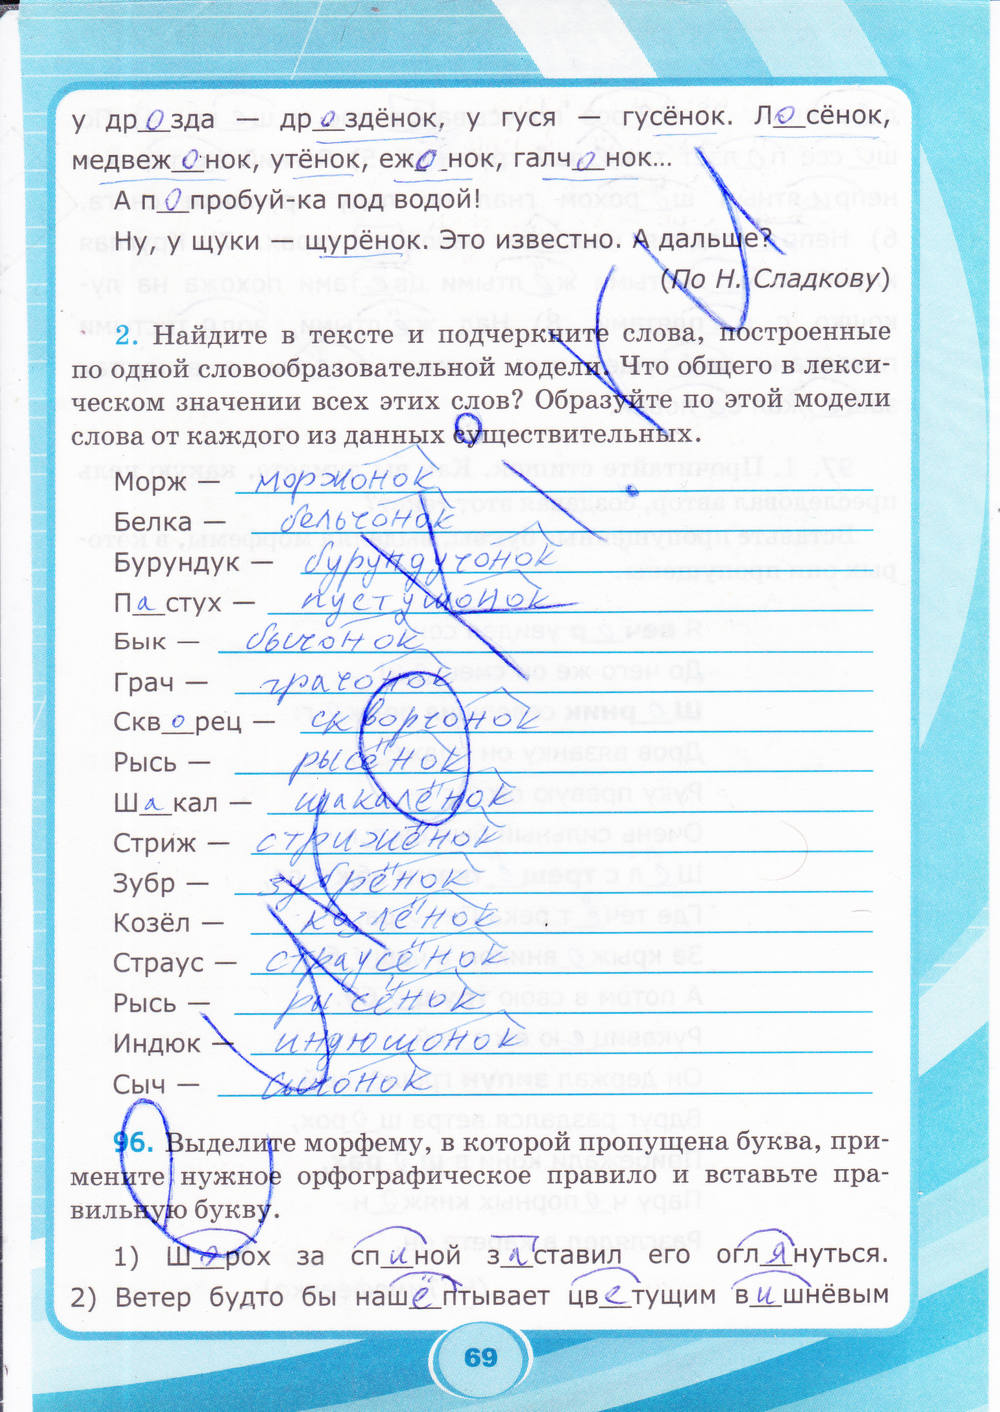 у др о зда — др о здёнок, у гуся — гусёнок. Л о сёнок,
медвеж о нок, утёнок, еж о нок, галч о нок...
А п о пробуй-ка под водой!
Ну, у щуки — щурёнок. Это известно. А дальше?
(По Н. Сладкову)
2. Найдите в тексте и подчеркните слова, построенные
по одной словообразовательной модели. Что общего в лекси-
ческом значении всех этих слов? Образуйте по этой модели
слова от каждого из данных существительных.
Морж — моржонок
Белка — бельчонок
Бурундук — бурундучонок
П а стух — пустушонок
Бык — бычонок
Грач — грачонок
Скв о рец — скворчонок
Рысь — рысёнок
Ш а кал — шакалёнок
Стриж — стрижёнок
Зубр — зубрёнок
Козёл — козлёнок
Страус — страусёнок
Рысь — рысёнок
Индюк — индюшонок
Сыч — сычонок
96. Выделите морфему, в которой пропущена буква, при-
мените нужное орфографическое правило и вставьте пра-
вильную букву.
1) Ш о рох за сп и ной з а ставил его огл я нуться.
2) Ветер будто бы наш ё птывает цв е тущим в и шнёвым
69